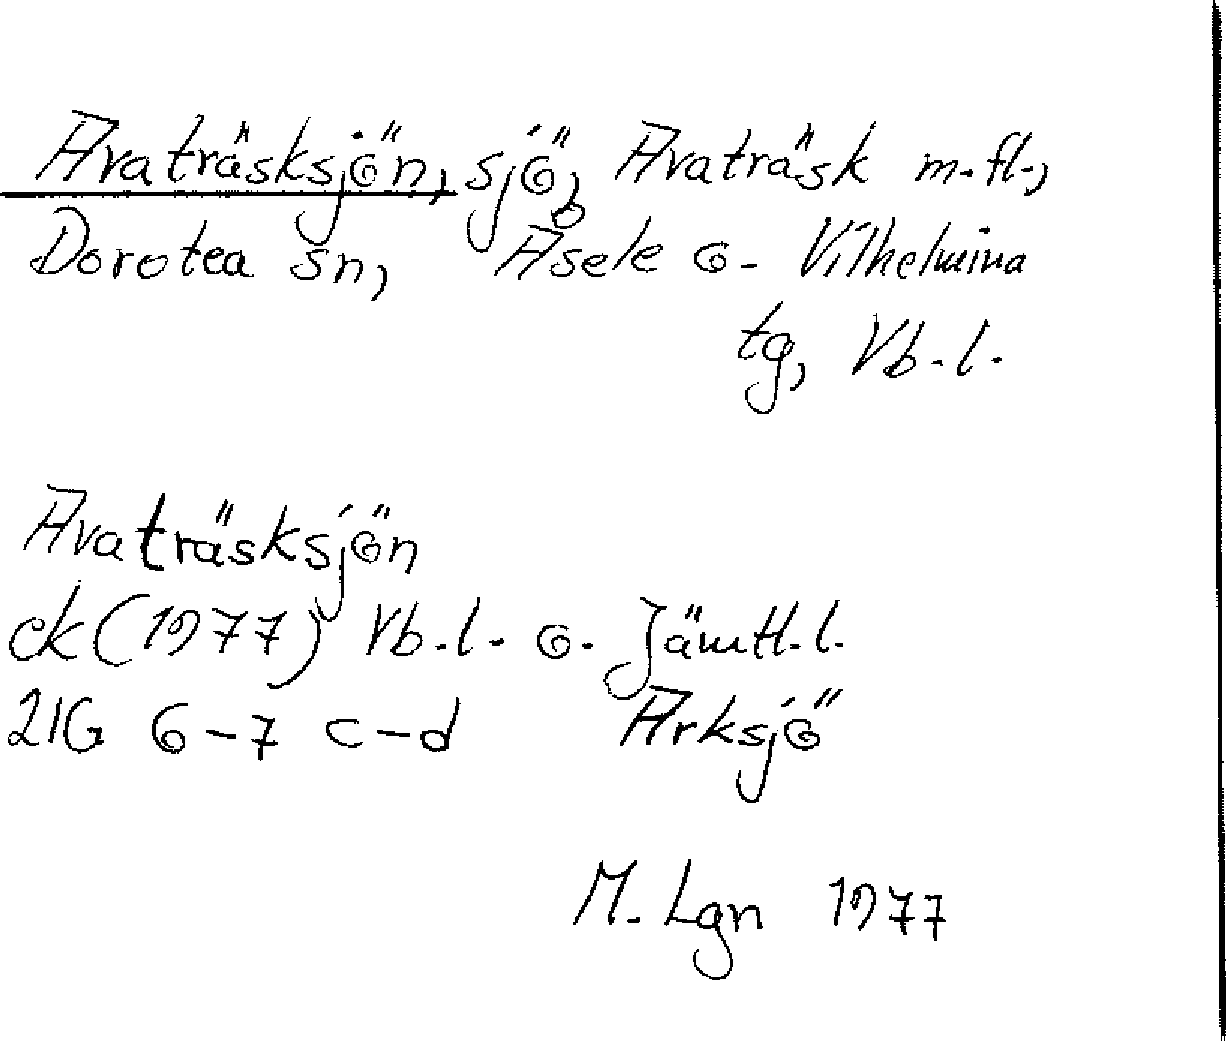 Avaträsksjön, sjö, Avaträsk m.fl.,
Dorotea sn, Åsele o. Vilhelmina
tg, Vb.l.
Avaträsksjön
ek (1977) Vb.l. o. Jämtl.l.
21G 6-7 c-d Arksjö
M. Lgn 1977